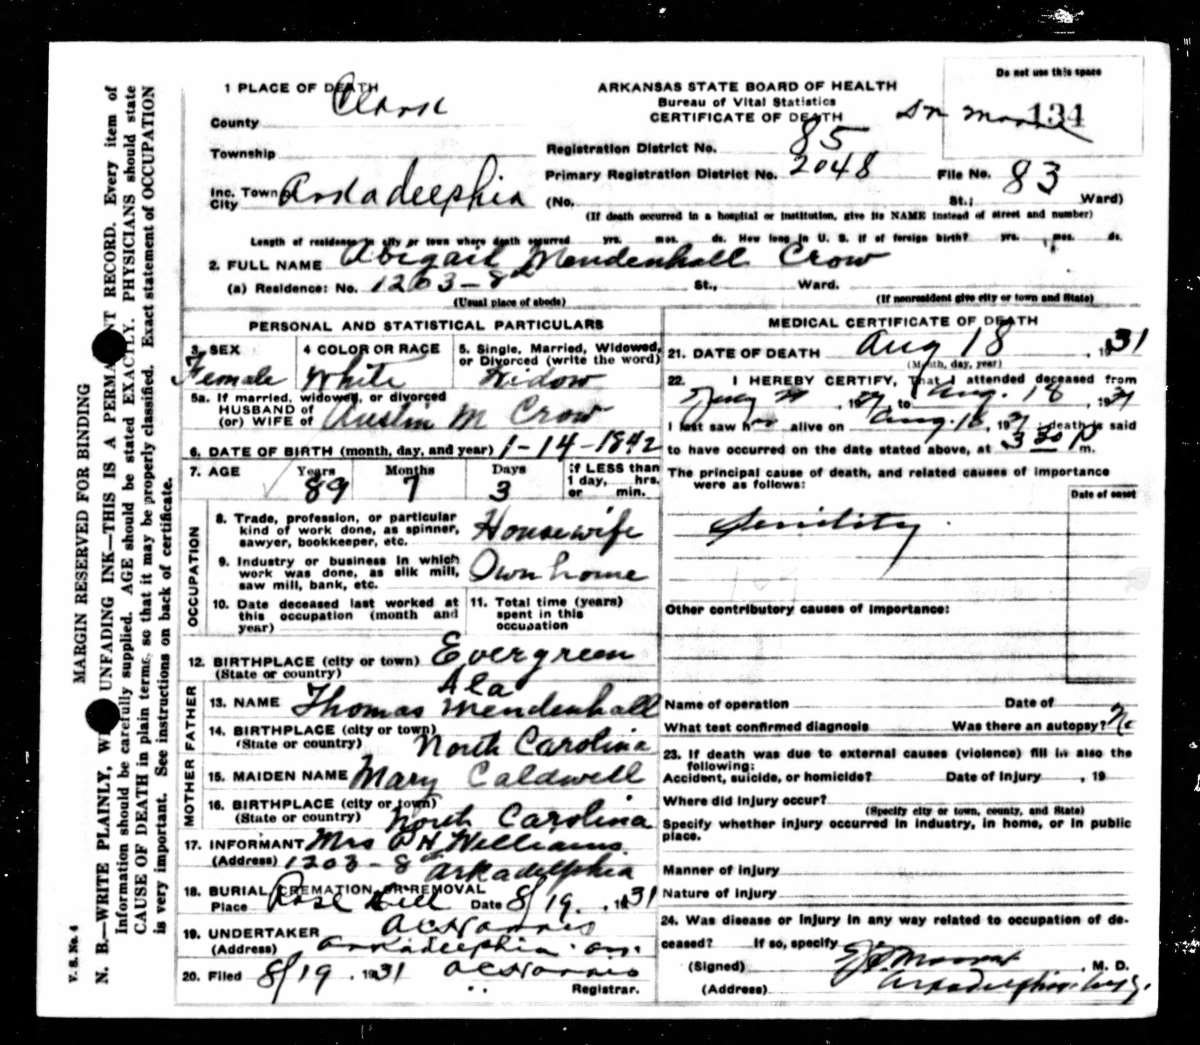 MARGIN RESERVED FOR BINDING
N. B.—WRITE PLAINLY, W UNFADING INK—THIS IS A PERMA T RECORD. Every item of
Information should be carefully supplied. AGE should be stated EXACTLY. PHYSICIANS should state
CAUSE OF DEATH in plain terms, so that it may be properly classified. Exact statement of OCCUPATION
is very important. See instructions on back of certificate.
V. S. No. 4
1 PLACE OF DEATH
County Clark
Township
Inc. Town
City Arkadelphia
ARKANSAS STATE BOARD OF HEALTH
Bureau of Vital Statistics
CERTIFICATE OF DEATH
Do not use this space
134
Dr Moore
Registration District No. 85
Primary Registration District No. 2048 File No. 83
(No. St.; Ward)
(If death occurred in a hospital or institution, give its NAME instead of street and number)
Length of residence in city or town where death occurred yrs. mos. ds. How long in U. S. if of foreign birth? yrs. mos. ds.
2. FULL NAME Abigail Mendenhall Crow
(a) Residence: No. 1203 - 8th St., Ward.
(Usual place of abode) (If nonresident give city or town and State)
PERSONAL AND STATISTICAL PARTICULARS
3. SEX Female
4 COLOR OR RACE White
5. Single, Married, Widowed, or Divorced (write the word) Widow
5a. If married, widowed, or divorced
HUSBAND of
(or) WIFE of Austin M Crow
6. DATE OF BIRTH (month, day, and year) 1-14-1842
7. AGE Years 89 Months 7 Days 3 If LESS than 1 day, hrs. or min.
OCCUPATION
8. Trade, profession, or particular kind of work done, as spinner, sawyer, bookkeeper, etc. Housewife
9. Industry or business in which work was done, as silk mill, saw mill, bank, etc. Own home
10. Date deceased last worked at this occupation (month and year)
11. Total time (years) spent in this occupation
12. BIRTHPLACE (city or town) Evergreen
(State or country) Ala
FATHER
13. NAME Thomas Mendenhall
14. BIRTHPLACE (city or town)
(State or country) North Carolina
MOTHER
15. MAIDEN NAME Mary Caldwell
16. BIRTHPLACE (city or town)
(State or country) North Carolina
17. INFORMANT Mrs H Williams
(Address) 1203 - 8th Arkadelphia
18. BURIAL, CREMATION, OR REMOVAL
Place Rose Hill Date 8/19, 1931
19. UNDERTAKER AC Norris
(Address) Arkadelphia
20. Filed 8/19, 1931 AC Norris
Registrar.
MEDICAL CERTIFICATE OF DEATH
21. DATE OF DEATH Aug 18, 1931
(Month, day, year)
22. I HEREBY CERTIFY, That I attended deceased from
, 19 to Aug. 18, 1931
I last saw h alive on Aug. 18, 1931; death is said
to have occurred on the date stated above, at 3 30 P m.
The principal cause of death, and related causes of importance
were as follows:
Date of onset
Senility
Other contributory causes of importance:
Name of operation Date of
What test confirmed diagnosis Was there an autopsy? No
23. If death was due to external causes (violence) fill in also the
following:
Accident, suicide, or homicide? Date of Injury , 19
Where did injury occur?
(Specify city or town, county, and State)
Specify whether injury occurred in industry, in home, or in public
place.
Manner of injury
Nature of injury
24. Was disease or injury in any way related to occupation of de-
ceased? If so, specify
(Signed) , M. D.
(Address) Arkadelphia